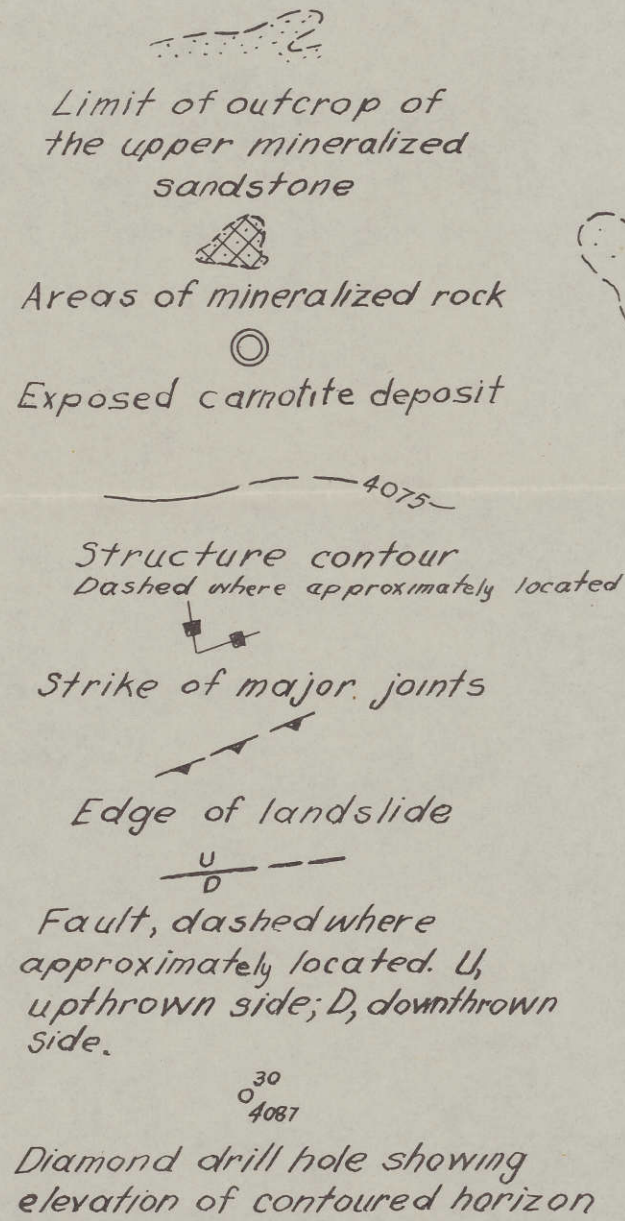 Limit of outcrop of
the upper mineralized
sandstone
Areas of mineralized rock
Exposed carnotite deposit
4075
Structure contour
Dashed where approximately located
Strike of major joints
Edge of landslide
U
D
Fault, dashed where
approximately located. U,
upthrown side; D, downthrown
side.
30
4087
Diamond drill hole showing
elevation of contoured horizon